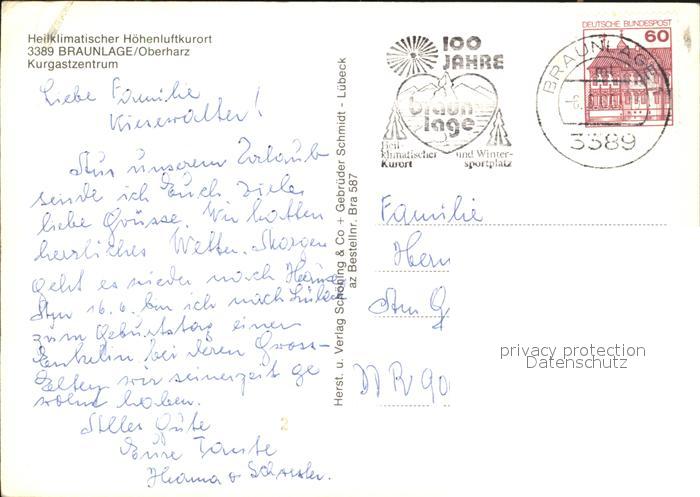 Heilklimatischer Höhenluftkurort
3389 BRAUNLAGE/Oberharz
Kurgastzentrum
Liebe Familie
Kiesewalter!
Aus unserem Urlaub
sende ich Euch viele
liebe Grüsse. Wir hatten
herrliches Wetter. Morgen
geht es wieder nach Hause
Am 16.6. bin ich nach
zum Geburtstag einer
Enkelin bei deren Gross-
Eltern wir seinerzeit ge
wohnt haben.
Alles Gute
Eure Tante
Hanna + Schwester.
2
Herst. u. Verlag Schöning & Co + Gebrüder Schmidt - Lübeck
az Bestellnr. Bra 587
100
JAHRE
braun
lage
Heil-
klimatischer und Winter-
Kurort sportplatz
BRAUNLAGE
3389
DEUTSCHE BUNDESPOST
60
Familie
Am G
DDR 90
privacy protection
Datenschutz